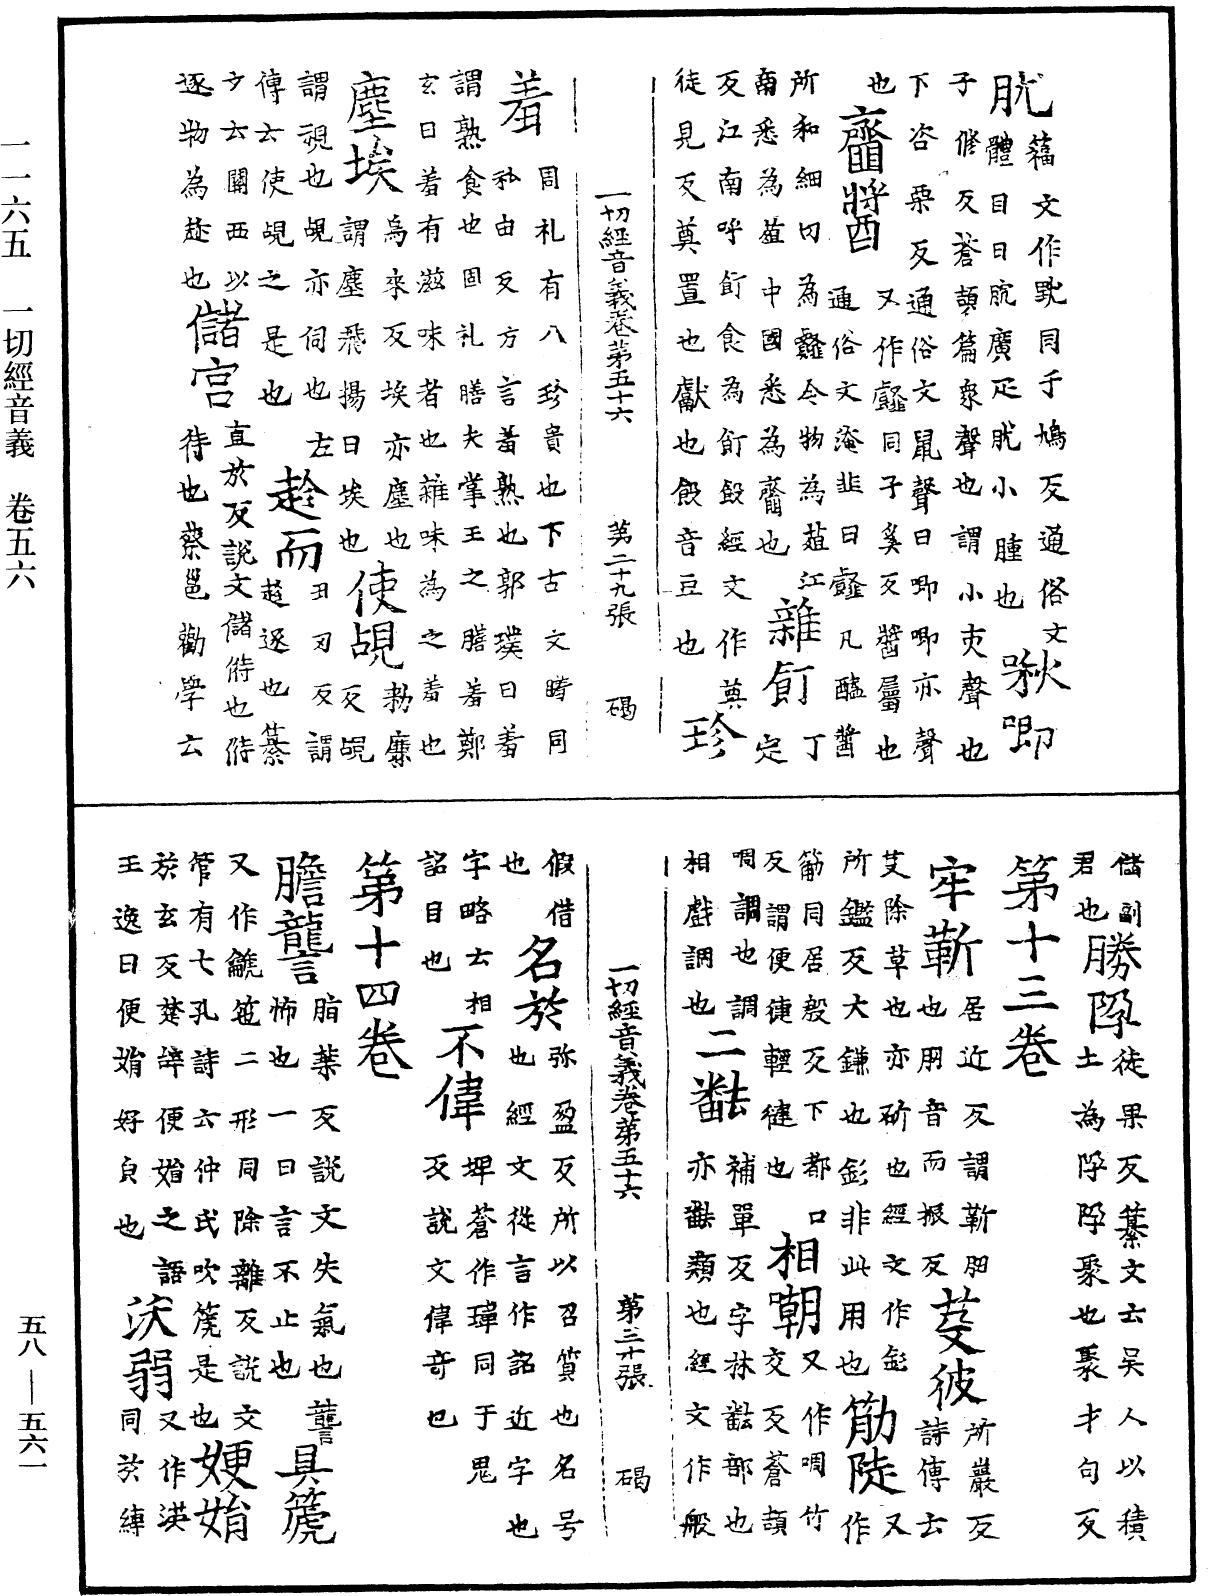 肬 籀文作黕同于鳩反通俗文
體肉曰肬廣疋肬小腫也 啾唧
子修反蒼頡篇衆聲也謂小吏聲也
下咨栗反通俗文鼠聲曰唧唧亦聲
也 齏醬 又作䪢同子奚反醬屬也
通俗文淹韭曰䪢凡醢醬
所和細切為䪢全物為葅江
南悉為葅中國悉為齏也 雜飣 丁定
反江南呼飣食為飣餖經文作奠
徒見反奠置也獻也餖音豆也 珍
一切經音義卷第五十六 第二十九張 碣
羞 同礼有八珍貴也下古文䐓同
私由反方言羞熟也郭璞曰羞
謂熟食也固礼膳夫掌王之膳羞鄭
玄曰羞有滋味者也雜味為之羞也
塵埃 烏來反埃亦塵也
謂塵飛揚曰埃也 使覘 勑廉反覘
謂視也覘亦伺也左
傳云使覘之是也 趁而 丑刃反謂
趁逐也纂
文云關西以
逐物為趁也 儲宮 直於反說文儲偫也偫
待也蔡邕勸學云
儲副
君也 勝陊 徒果反纂文云吳人以積
土為陊陊聚也聚才句反
第十三卷
牢靳 居近反謂靳肕
也肕音而振反 芟彼 所巖反
詩傳云
芟除草也亦斫也經文作釤
所鑑反大鎌也釤非此用也 筋陡 又作
㔝同居殷反下都口
反謂便倢輕䢖也 相嘲 又作啁竹
交反蒼頡
啁調也調
相戲調也 二㽃 補單反字林㽃部也
亦㽃類也經文作般
一切經音義卷第五十六 第三十張 碣
假借
也 名於 弥盈反所以召質也名号
也經文從言作詺近字也
字略云相
詺目也 不偉 埤蒼作瑋同于鬼
反說文偉奇也
第十四卷
膽讋 脂葉反說文失氣也讋
怖也一曰言不止也 具篪
又作䶵竾二形同除離反說文
管有七孔詩云仲氏吹篪是也 娞娋
於玄反楚辞便娟之語
王逸曰便娟好皃也 浂弱 又作渶
同於縛
一一六五 一切經音義 卷五六
五八——五六一